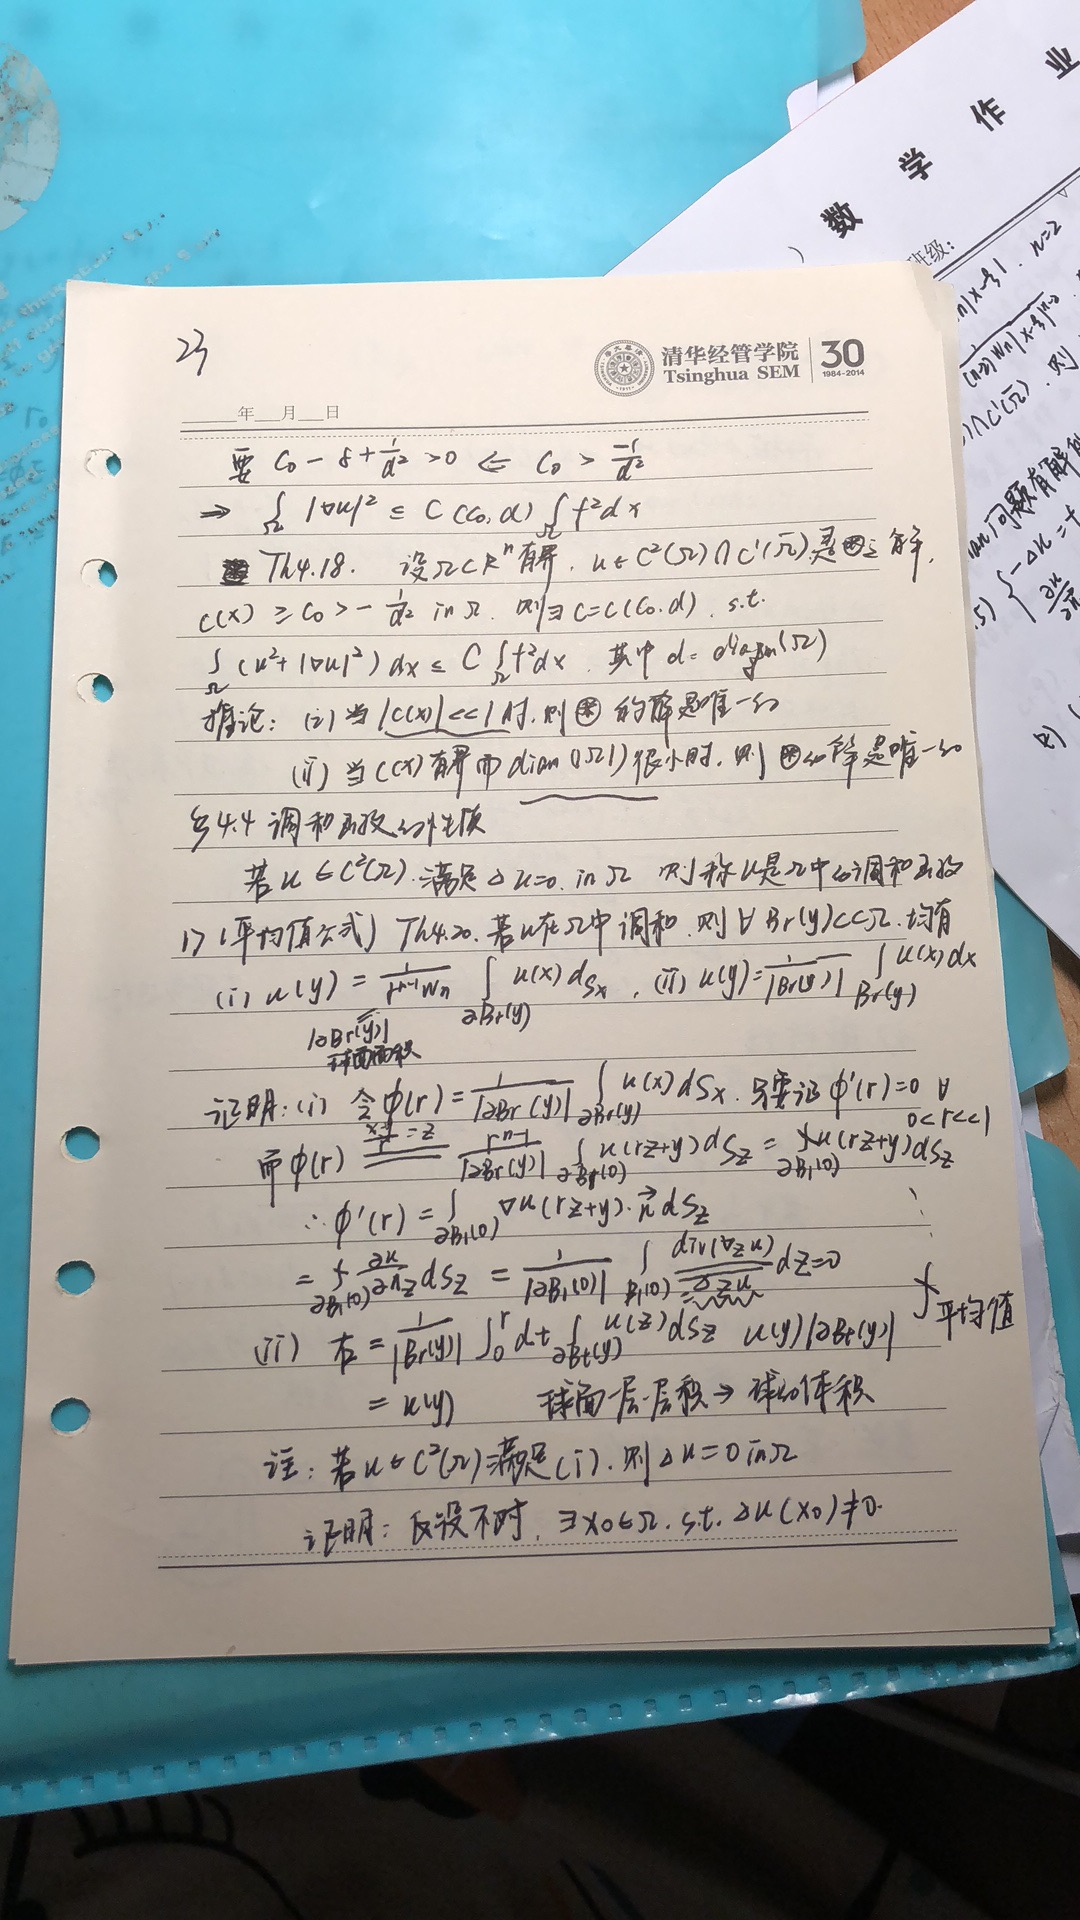 数 学 作 业
班级:
n|x-ξ|, n=2
23
清华经管学院
Tsinghua SEM
30
1984-2014
年 月 日
要 C₀ - δ + 1/d² > 0 ⇐ C₀ > -1/d²
⇒ ∫_Ω |∇u|² ≤ C(C₀,d) ∫_Ω f²dx
Th4.18. 设Ω⊂Rⁿ有界, u∈C²(Ω)∩C¹(Ω̄)是⊛之解,
C(x) ≥ C₀ > -1/d² in Ω. 则∃C=C(C₀,d). s.t.
∫_Ω (u²+|∇u|²)dx ≤ C ∫_Ω f²dx, 其中 d= diam(Ω)
推论: (i) 当|C(x)|<<1时, 则⊛的解是唯一的
(ii) 当C(x)有界而diam(Ω)很小时, 则⊛的解是唯一的
§4.4 调和函数的性质
若u∈C²(Ω).满足Δu=0. in Ω 则称u是Ω中的调和函数
1> (平均值公式) Th4.20. 若u在Ω中调和, 则∀Br(y)<<Ω.均有
(i) u(y) = 1/(rⁿ⁻¹Wn) ∫_∂Br(y) u(x)dSx, (ii) u(y)=1/|Br(y)| ∫_Br(y) u(x)dx
|∂Br(y)|
球面面积
证明:(i) 令φ(r)=1/|∂Br(y)| ∫_∂Br(y) u(x)dSx. 只要证φ'(r)=0 ∀
0<r<<1
而φ(r) (x-y)/r=z = rⁿ⁻¹/|∂Br(y)| ∫_∂B₁(0) u(rz+y)dSz = ⨍_∂B₁(0) u(rz+y)dSz
∴ φ'(r) = ∫_∂B₁(0) ∇u(rz+y)·n⃗ dSz
= ⨍_∂B₁(0) ∂u/∂nz dSz = 1/|∂B₁(0)| ∫_B₁(0) div(∇zu) dz=0
=Δzu
⨍ 平均值
(ii) 右 = 1/|Br(y)| ∫₀ʳ dt ∫_∂Bt(y) u(z)dSz u(y)|∂Bt(y)|
= u(y) 球面一层一层积→球的体积
注: 若u∈C²(Ω)满足(i). 则Δu=0 in Ω
证明: 反设不对, ∃x₀∈Ω. s.t. Δu(x₀)≠0.